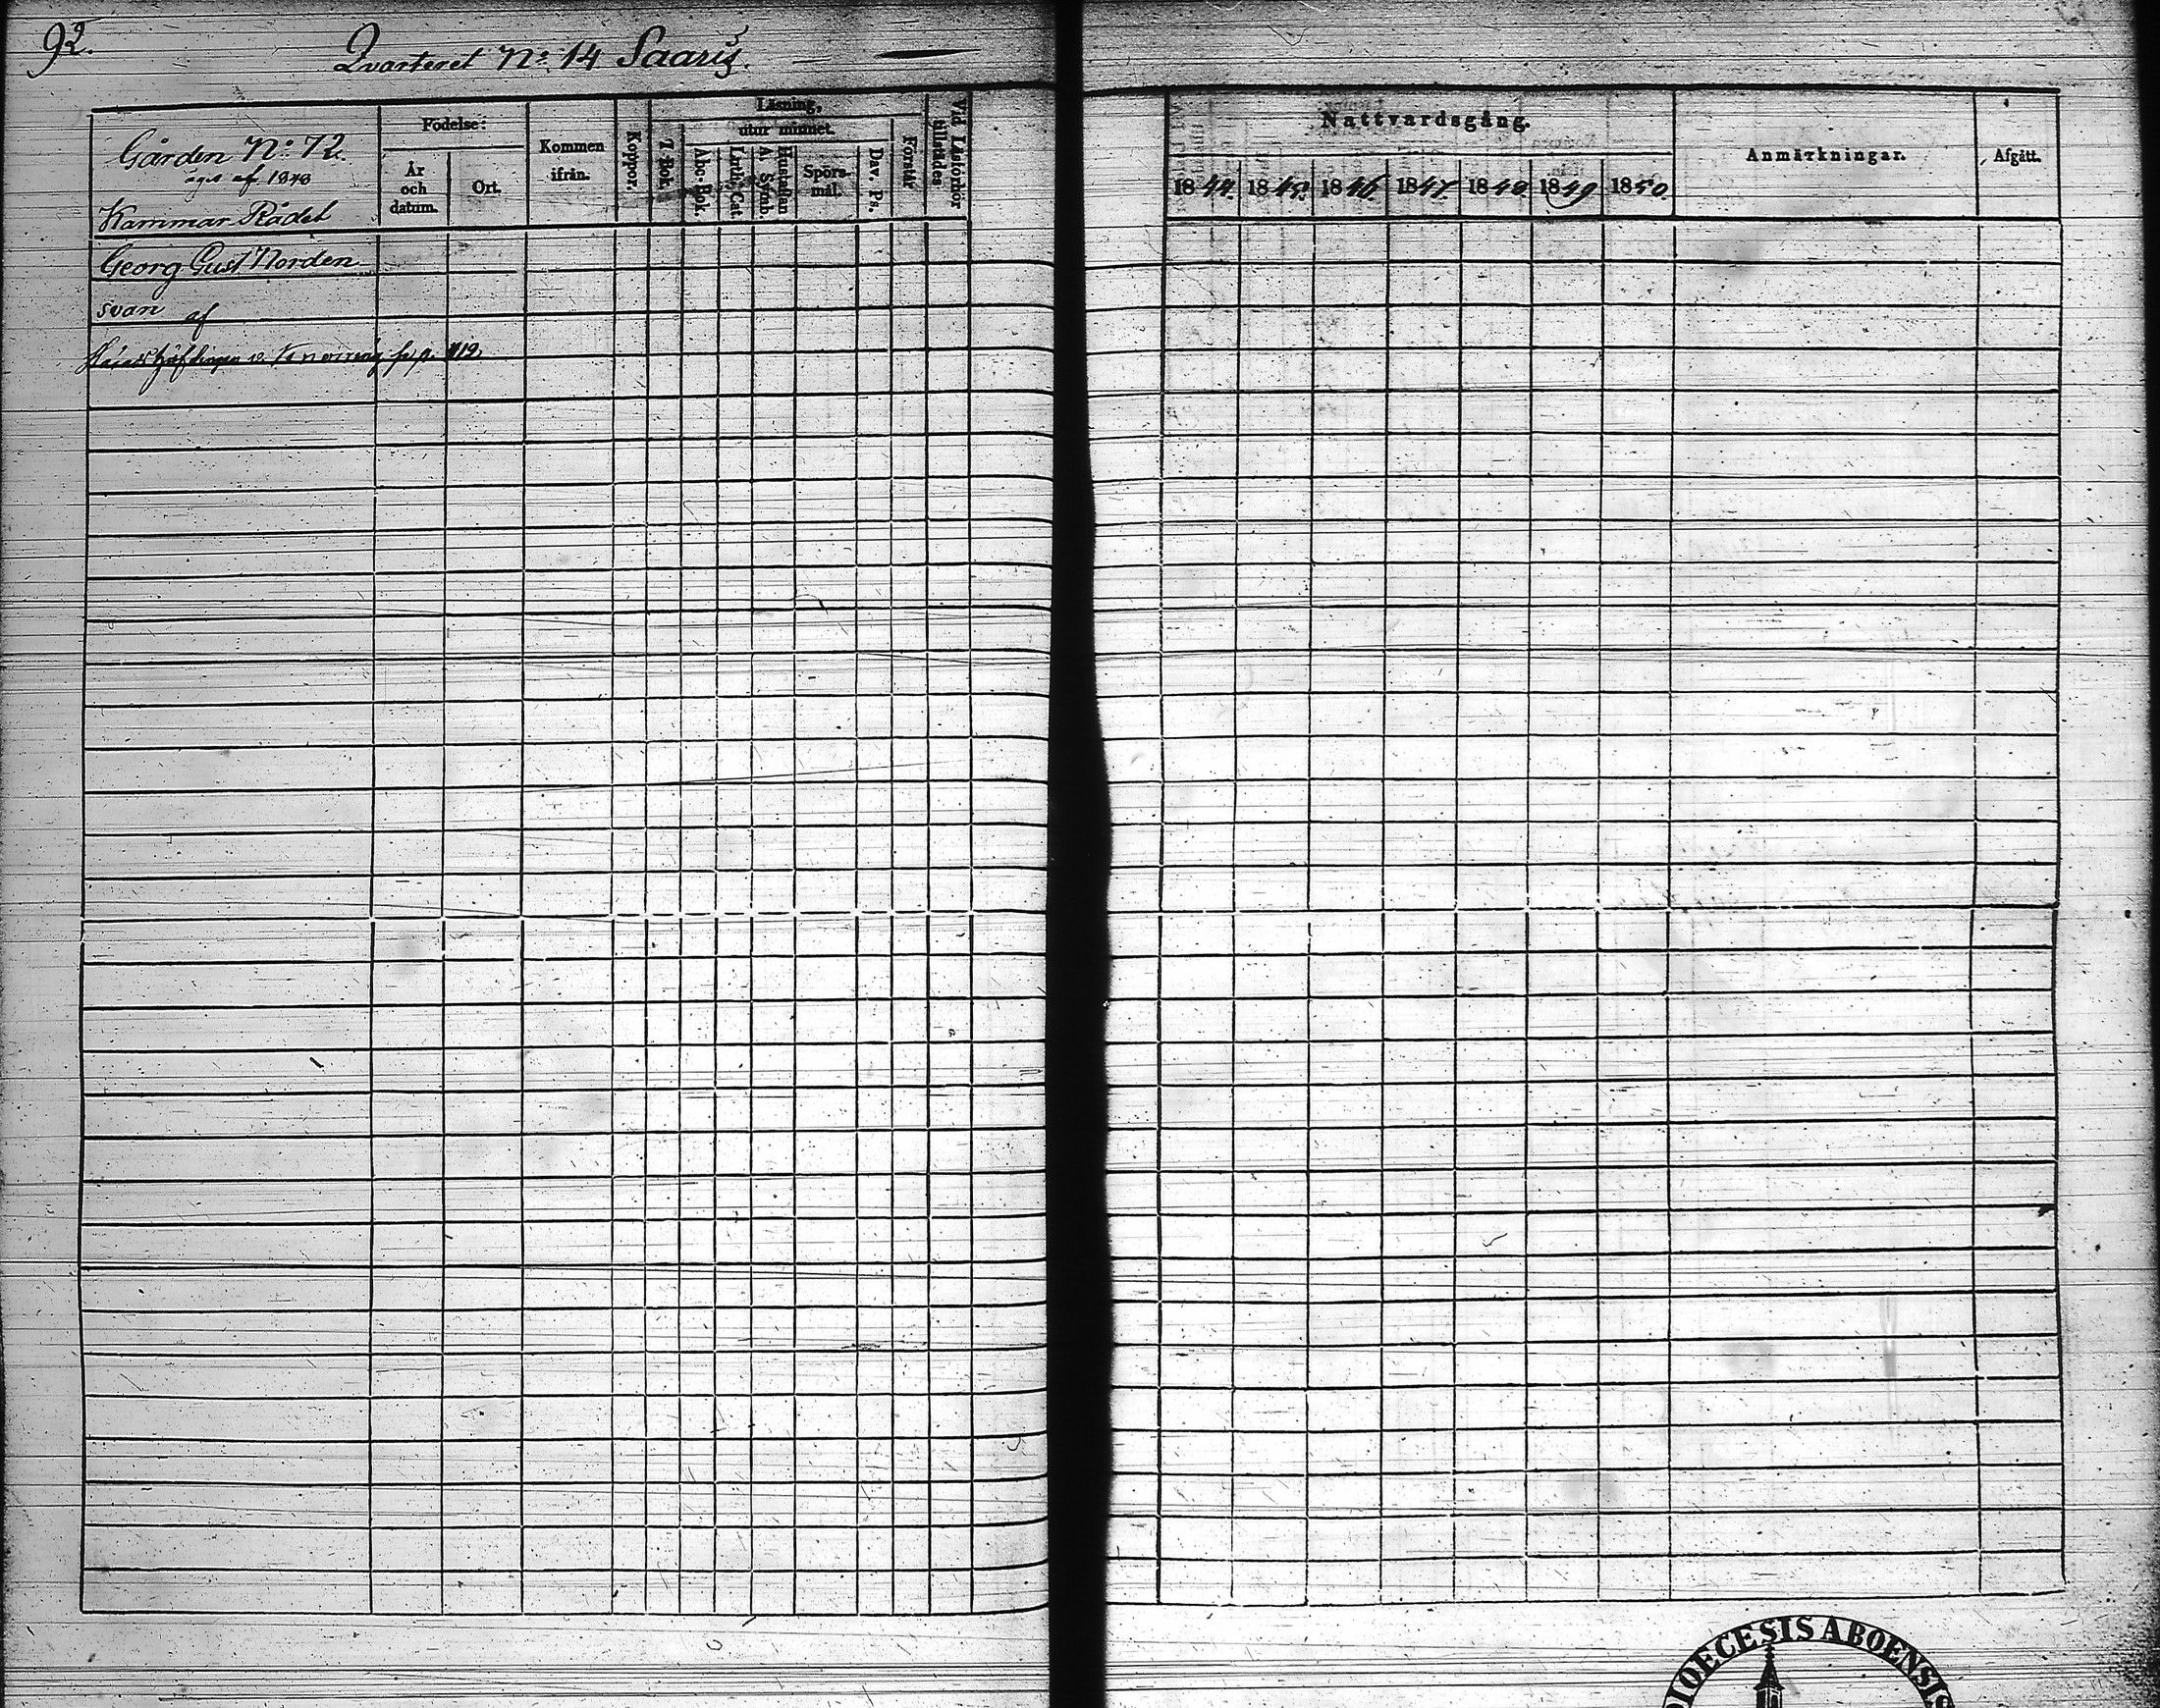 92.
Qvarteret No: 14 Saaris.
Gården No: 72.
äges af 1848
Kammar Rådet
Georg Gust Norden
svan
af
p. 119.
Födelse:
År och datum.
Ort.
Kommen ifrån.
Koppor.
Läsning,
utur minnet.
I Bok.
Abc-Bok.
Luth. Cat.
Hustaflan A. Symb.
Spörsmål.
Dav. Ps.
Förstår
Vid Läsförhör tillstädes
Nattvardsgång.
1844. 1845. 1846. 1847. 1848 1849 1850.
Anmärkningar.
Afgått.
DIOECESIS ABOENSIS